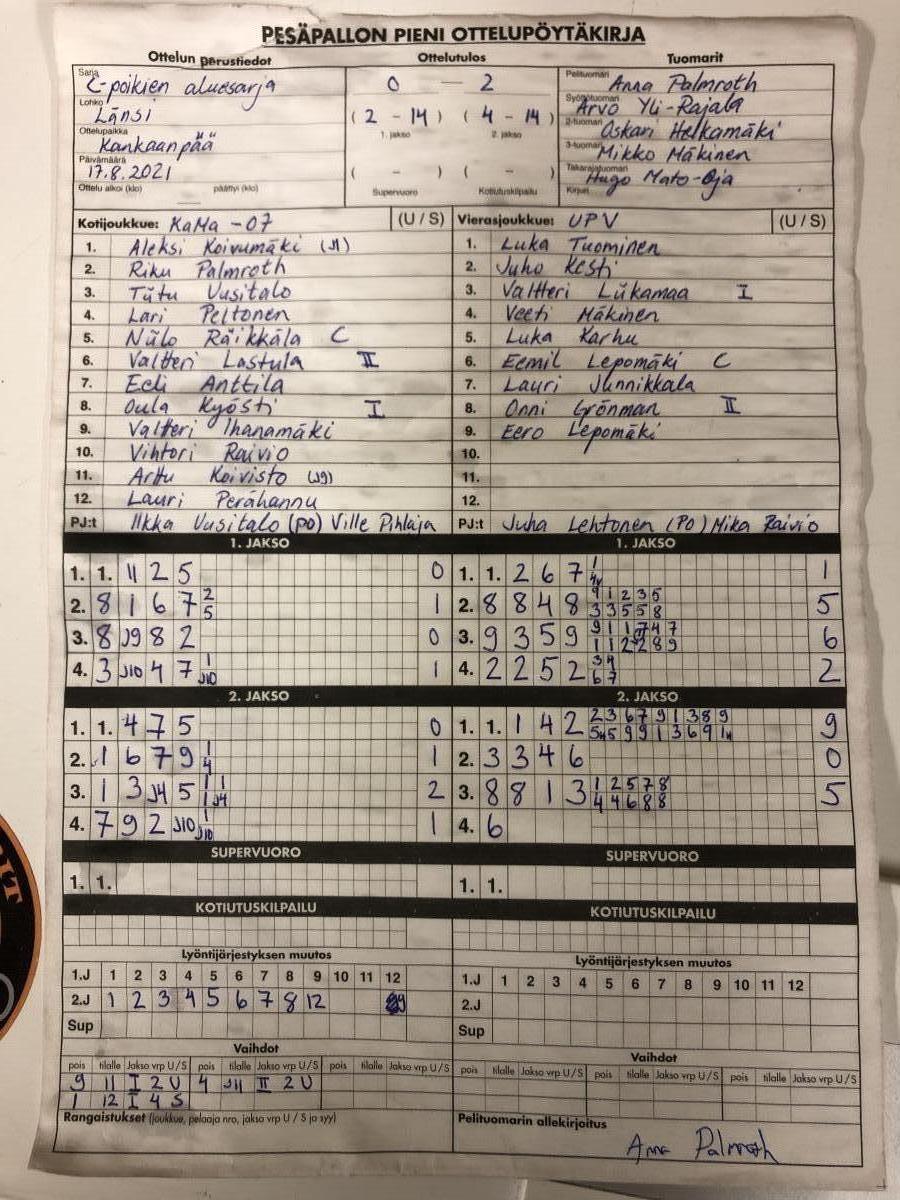 PESÄPALLON PIENI OTTELUPÖYTÄKIRJA
Ottelun perustiedot Ottelutulos Tuomarit
Sarja C-poikien aluesarja 0 — 2 Pelituomari Anna Palmroth
Lohko Länsi (2 - 14) (4 - 14) Syöttötuomari Arvo Yli-Rajala
1. jakso 2. jakso
Ottelupaikka Kankaanpää 2-tuomari Oskari Helkamäki
3-tuomari Mikko Mäkinen
Päivämäärä 17.8.2021 ( - ) ( - ) Takarajatuomari Hugo Mato-Oja
Ottelu alkoi (klo) päättyi (klo) Supervuoro Kotiutuskilpailu Kirjuri
Kotijoukkue: KaMa -07 (U / S) Vierasjoukkue: UPV (U / S)
1. Aleksi Koivumäki 1. Luka Tuominen
2. Riku Palmroth 2. Juho Kesti
3. Tiitu Uusitalo 3. Valtteri Liikamaa I
4. Lari Peltonen 4. Veeti Mäkinen
5. Niilo Räikkälä C 5. Luka Karhu
6. Valtteri Lastula II 6. Eemil Lepomäki C
7. Eeli Anttila 7. Lauri Junnikkala
8. Oula Kyösti I 8. Onni Grönman II
9. Valtteri Ihanamäki 9. Eero Lepomäki
10. Vihtori Raivio 10.
11. Arttu Koivisto (J9) 11.
12. Lauri Perähannu 12.
PJ:t Ilkka Uusitalo (PO) Ville Pihlaja PJ:t Juha Lehtonen (PO) Mika Raivio
1. JAKSO 1. JAKSO
1. 1. 11 2 5 0 1. 1. 2 6 7 1
2. 8 1 6 7 2 5 1 2. 8 8 4 8 9 1 2 3 5 5
3 3 5 5 8
3. 8 J9 8 2 0 3. 9 3 5 9 6
4. 3 J10 4 7 1 J10 1 4. 2 2 5 2 2
2. JAKSO 2. JAKSO
1. 1. 4 7 5 0 1. 1. 1 4 2 2 3 6 7 9 1 3 8 9 9
2. 1 6 7 9 1 4 1 2. 3 3 4 6 0
3. 1 3 J4 5 1 1 1 J4 2 3. 8 8 1 3 1 2 5 7 8 5
4 4 6 8 8
4. 7 9 2 J10 1 J10 1 4. 6
SUPERVUORO SUPERVUORO
1. 1. 1. 1.
KOTIUTUSKILPAILU KOTIUTUSKILPAILU
Lyöntijärjestyksen muutos Lyöntijärjestyksen muutos
1.J 1 2 3 4 5 6 7 8 9 10 11 12 1.J 1 2 3 4 5 6 7 8 9 10 11 12
2.J 1 2 3 4 5 6 7 8 12 2.J
Sup Sup
Vaihdot Vaihdot
pois tilalle Jakso vrp U / S pois tilalle Jakso vrp U / S pois tilalle Jakso vrp U / S pois tilalle Jakso vrp U / S pois tilalle Jakso vrp U / S pois tilalle Jakso vrp U / S
9 11 I 2 U 4 J11 II 2 U
1 12 I 4 S
Rangaistukset (joukkue, pelaaja nro, jakso vrp U / S ja syy) Pelituomarin allekirjoitus
Anna Palmroth